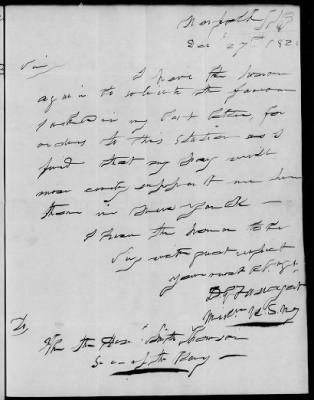 Norfolk
Decr 27th 182
Sir,
I have the honour
again to solicit the favour
I asked in my last letter, for
orders to this Station as I
find that my pay will
more easily support me here
than in New York —
I have the honor to be
Very with great respect
your most Ob. Sgt.
D G Farragut
Midn U. S. Ny
To
The Hon. Smith Thompson
Sec. of the Navy —